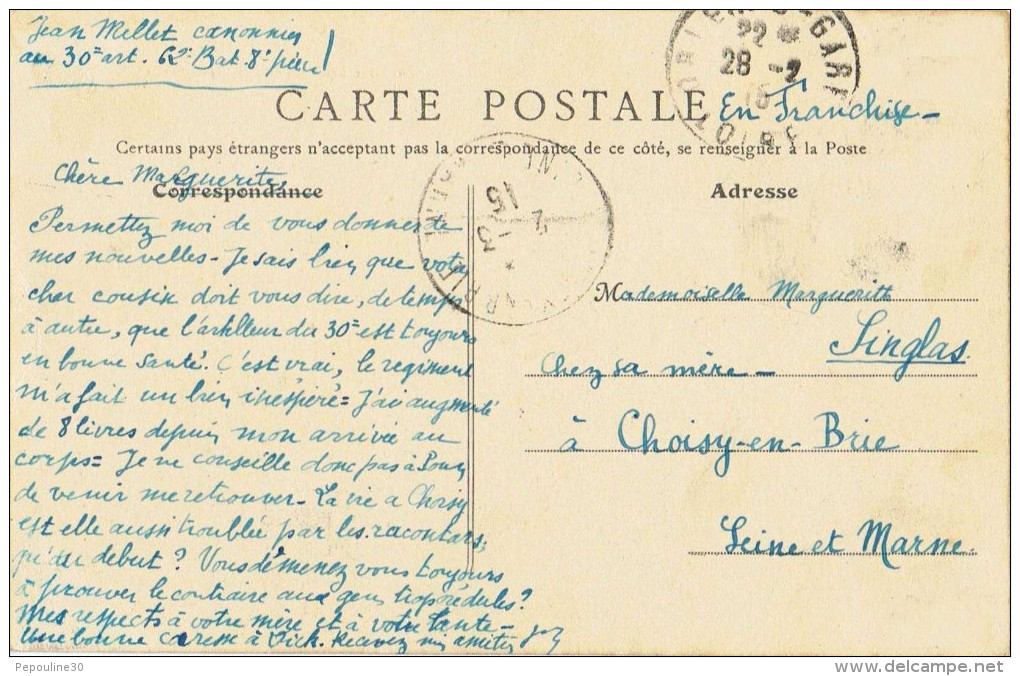 Jean Mellet canonnier
au 30e art. 62e Bat 8e pièce
CARTE POSTALE
En Franchise -
22
28 -2
15
GARE
LOIRE
Certains pays étrangers n'acceptent pas la correspondance de ce côté, se renseigner à la Poste
Chère Marguerite,
Correspondance
Adresse
15
2
3
Permettez moi de vous donner de
mes nouvelles - Je sais bien que votre
cher cousin doit vous dire, de temps
à autre, que l'artilleur du 30e est toujours
en bonne santé. C'est vrai, le regiment
m'a fait un bien inespéré = J'ai augmenté
de 8 livres depuis mon arrivée au
corps = Je ne conseille donc pas à
de venir me retrouver - La vie a Choisy
est elle aussi troublée par les racontars
qu'au debut ? Vous démenez vous toujours
à prouver le contraire aux gens trop crédules ?
Mes respects à votre mère et à votre tante -
Une bonne caresse à Dick. Recevez mes amitiés
Mademoiselle Marguerite
Singlas.
Chez sa mère -
à Choisy-en-Brie
Seine et Marne.
Pepouline30
www.delcampe.net